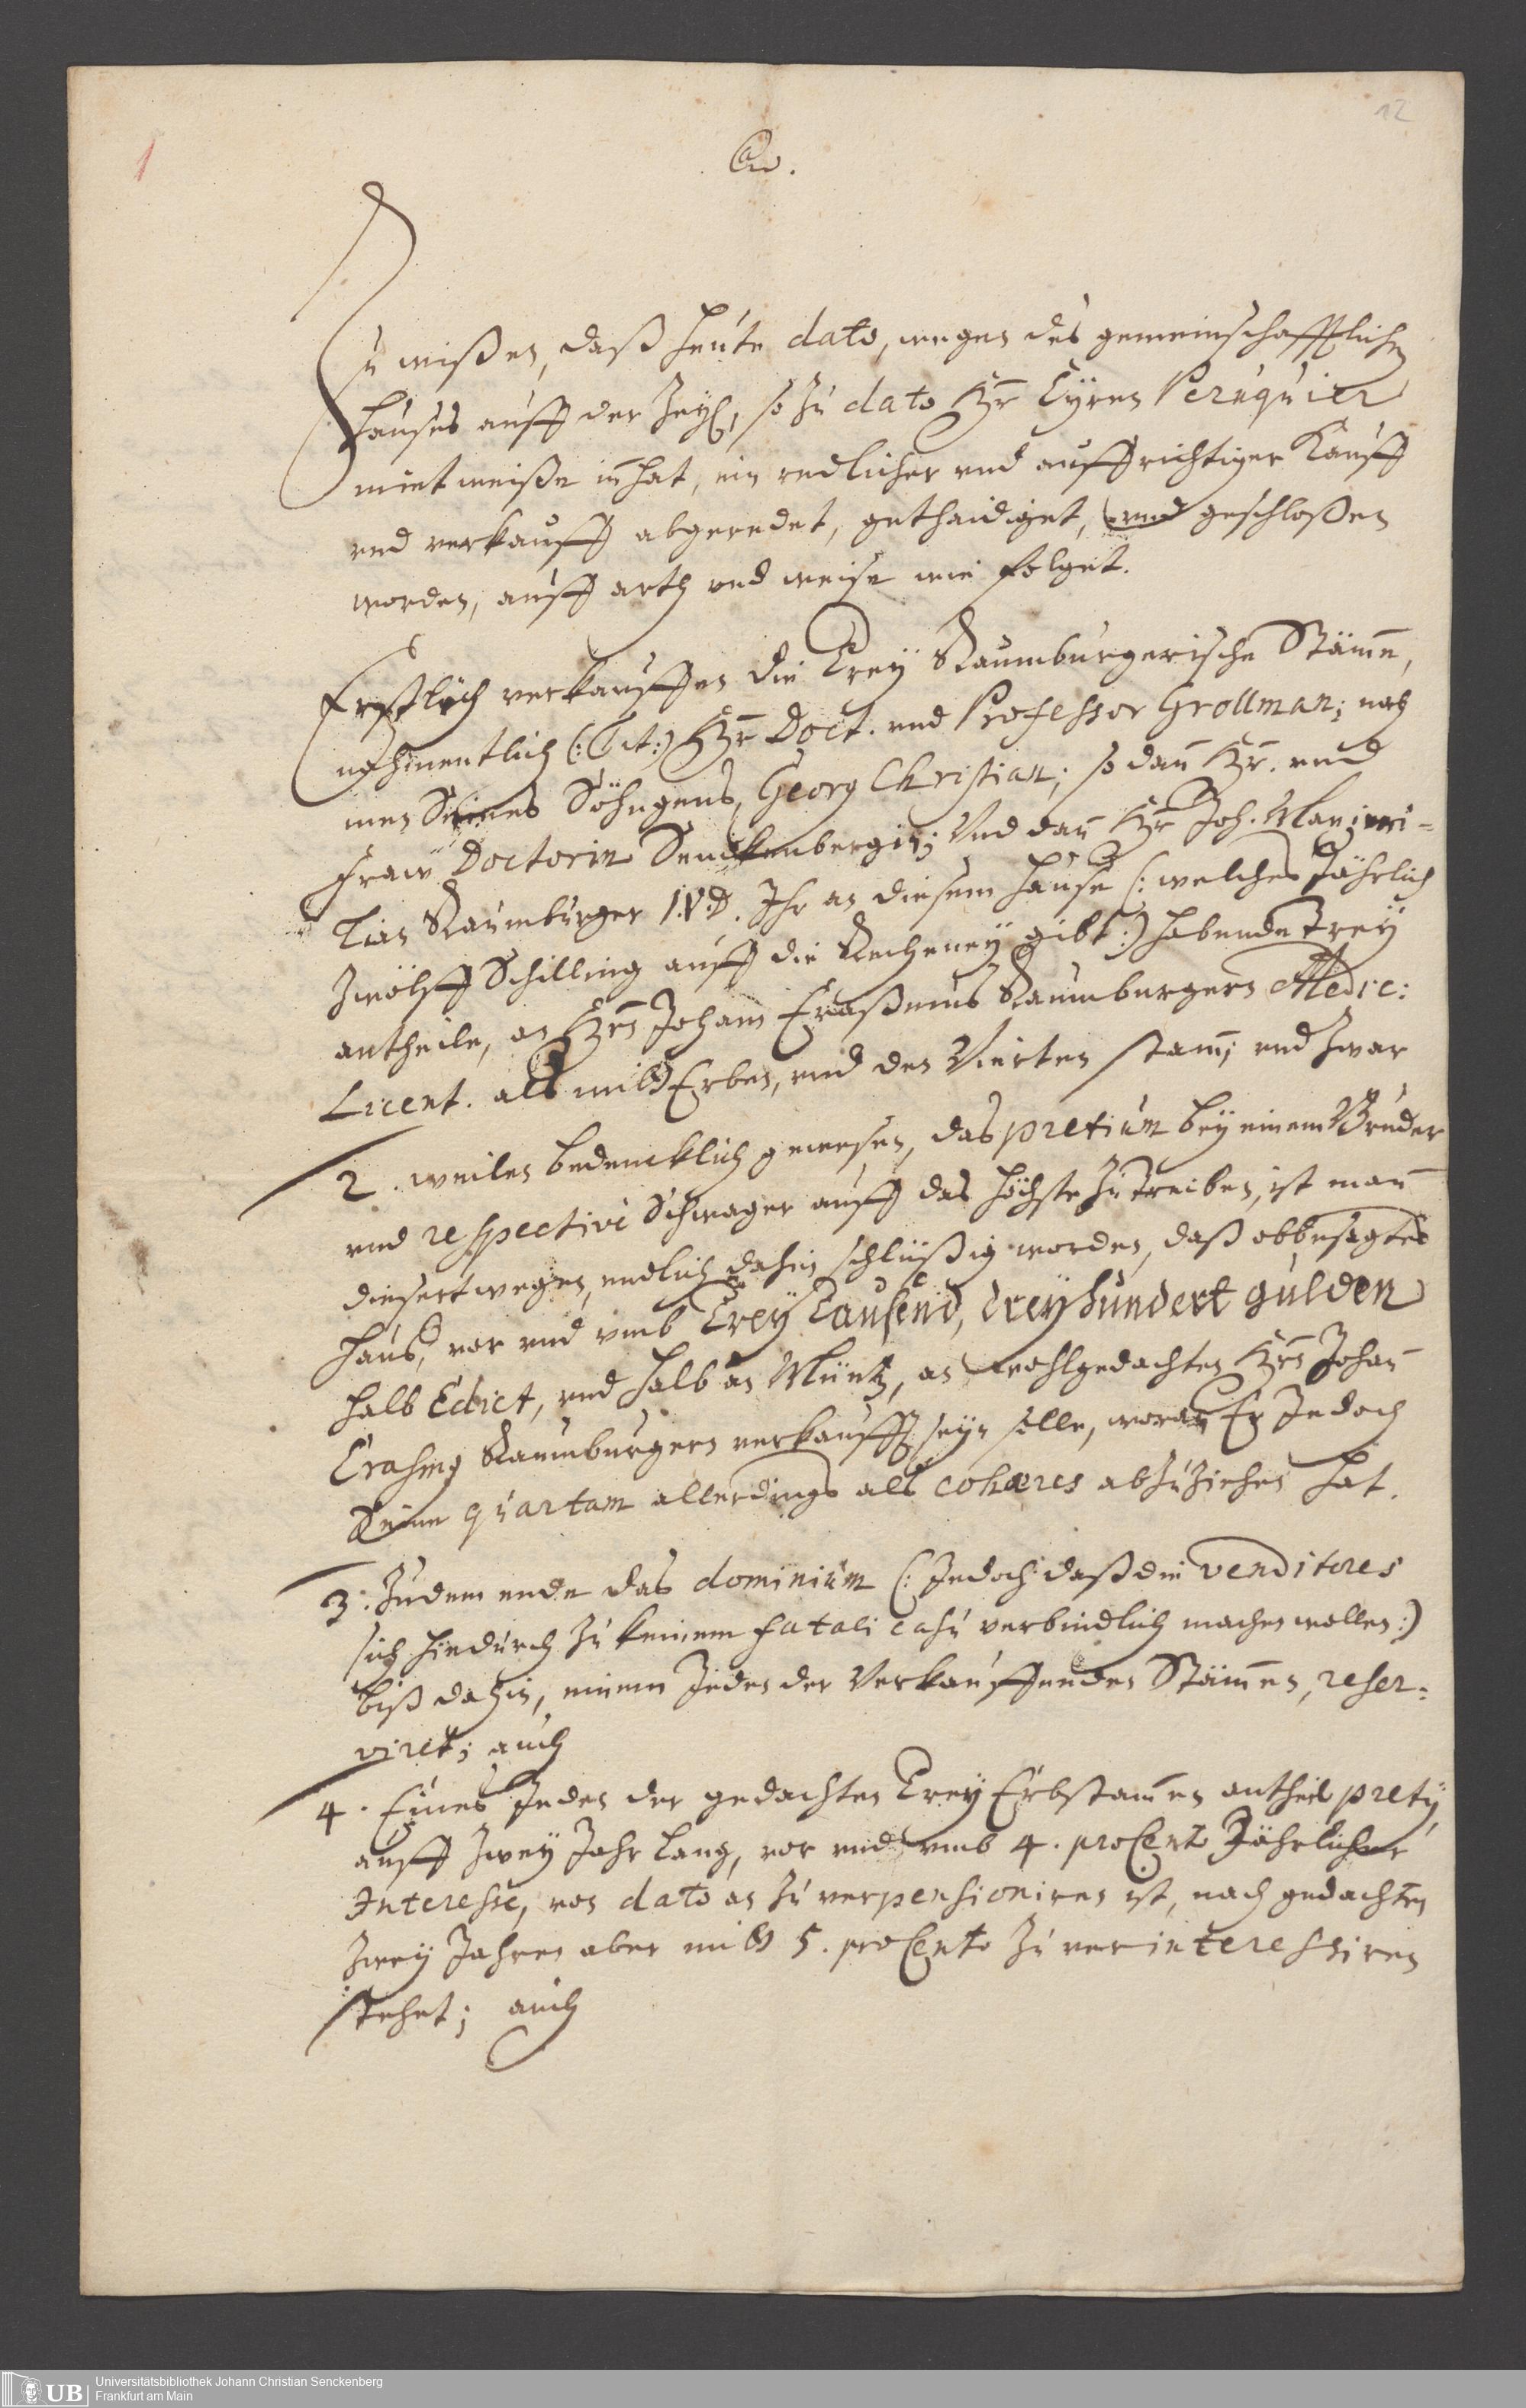 12
1
Zu wißen, daß heute dato, wegen des gemeinschafftlichen
Hauses auff der Zeyl, so zu dato Hr Peruquier
miet weiße inhat, ein redlicher und auffrichtiger Kauff
und verkauff abgeredet, gethaidiget, und geschloßen
worden, auff arth und weise wie folget.
Erstlich verkauffen die Drey Raumburgerische Stämme,
nahmentlich (: Tit :) Hr Doct. und Professor Grollman; nah
men Seines Söhngens, Georg Christian; so dan Hr. und
Fraw Doctorin Senckenbergin; Und dan Hr Joh. Maximi=
lian Raumburger I.V.D. Ihr an diesem Hause (: welches Jährlich
Zwölff Schilling auff die Recheney gibt :) habende Drey
antheile, an Hrn Johann Eraßmus Raumburgern Medic:
Licent. als mitt Erben, und den Vierten stam; und Zwar
2. weilen bedencklich gewesen, das pretium bey einem Bruder
und respective Schwager auff das höchste zu treiben, ist man
diesertwegen, endlich dahin schlüßig worden, daß obbesagtes
Haus, vor und umb Drey Tausend, dreyhundert gulden
halb Edict, und halb an Müntz, an wohlgedachten Hrn Johan
Erasmg Raumburgern verkaufft seyn solle, woran Er Jedoch
Seine quartam allerdings als cohæres abzuziehen hat.
3. Zudem ende das dominium (: Jedoch daß die venditores
sich hiedurch zu keinem fatali casu verbindlich machen wollen :)
biß dahin, einem Jeden der Verkauffenden Stämmen, reser=
viret; auch
4. Eines Jeden der gedachten Drey Erbstammen antheil prety,
auff zwey Jahr lang, vor und umb 4. proCento Jährlicher
Interesse, von dato an zu verpensioniren ist, nach gedachten
Zwey Jahren aber mitt 5. proCento zu verinteressiren
stehet; auch
UB
Universitätsbibliothek Johann Christian Senckenberg
Frankfurt am Main